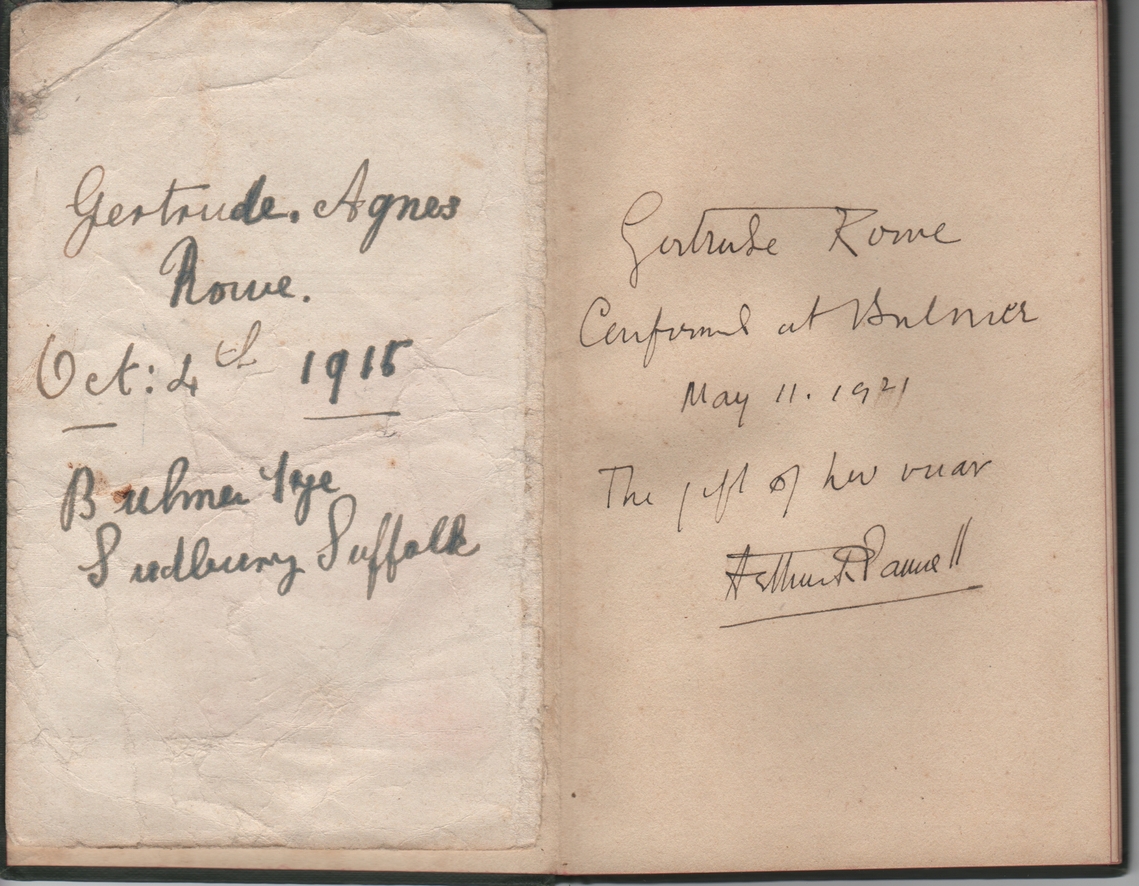 Gertrude. Agnes
Rowe.
Oct: 4th 1915
Bulmer Tye
Sudbury Suffolk
Gertrude Rowe
Confirmed at Bulmer
May 11. 1921
The gift of her vicar
Arthur Pannell